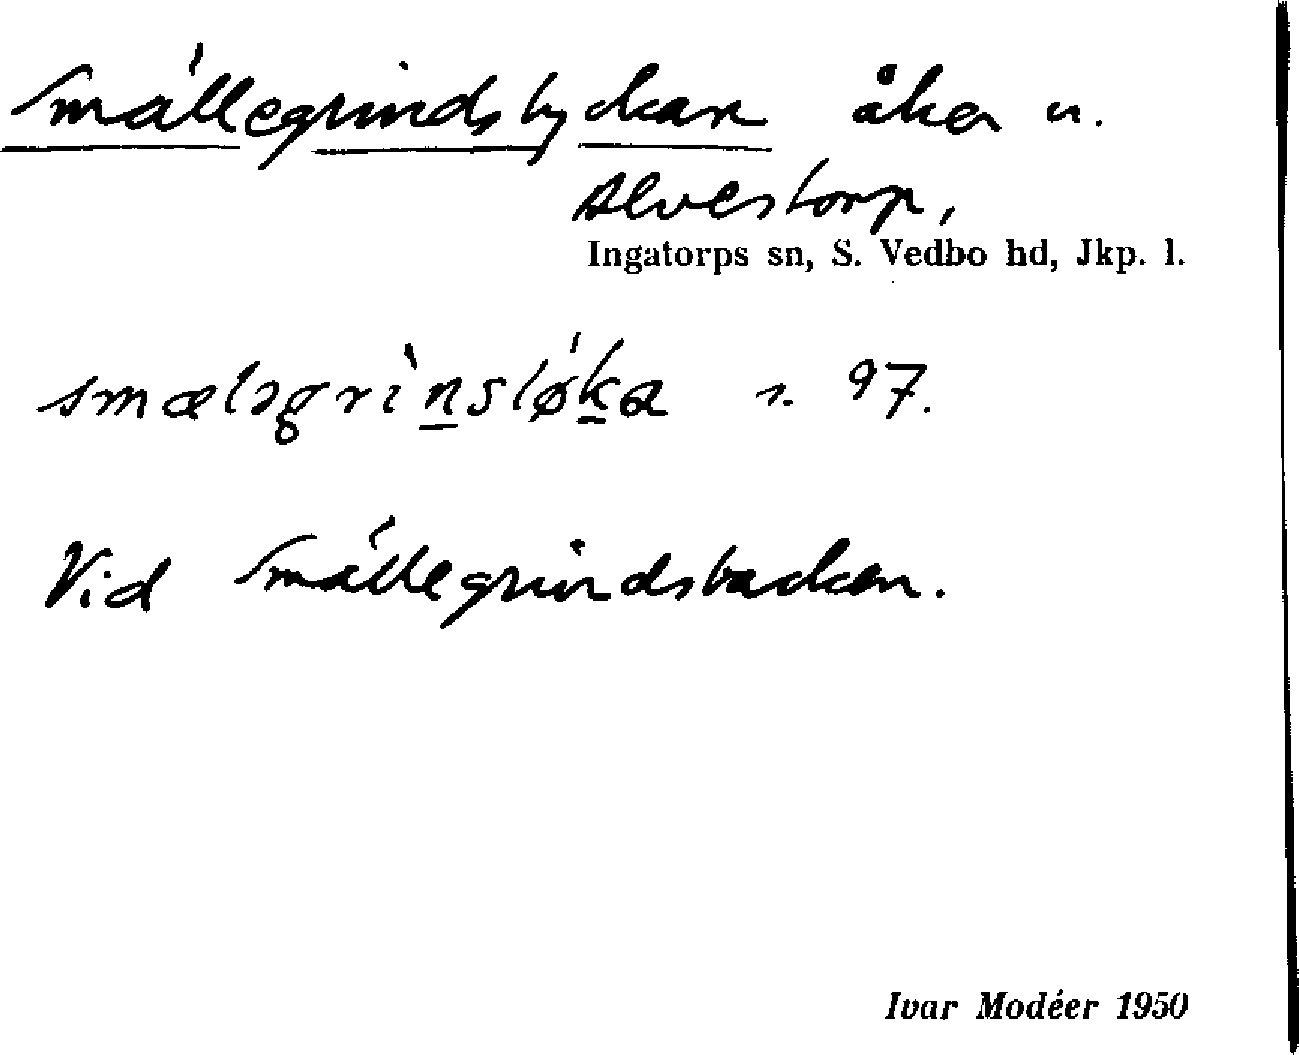 Smällegrindslyckan åker u.
Alvestorp,
Ingatorps sn, S. Vedbo hd, Jkp. l.
smæləgrìnsløka s. 97.
Vid Smällegrindsbacken.
Ivar Modéer 1950